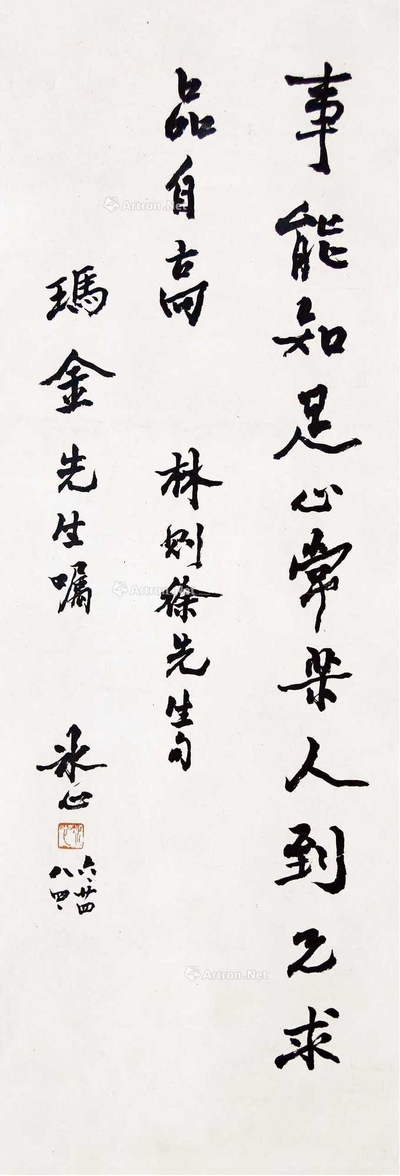 事能知足心常乐人到无求
品自高
林则徐先生句
瑪金先生嘱
冰心
六、廿四
八四、
Artron.Net
Artron.Net
Artron.Net